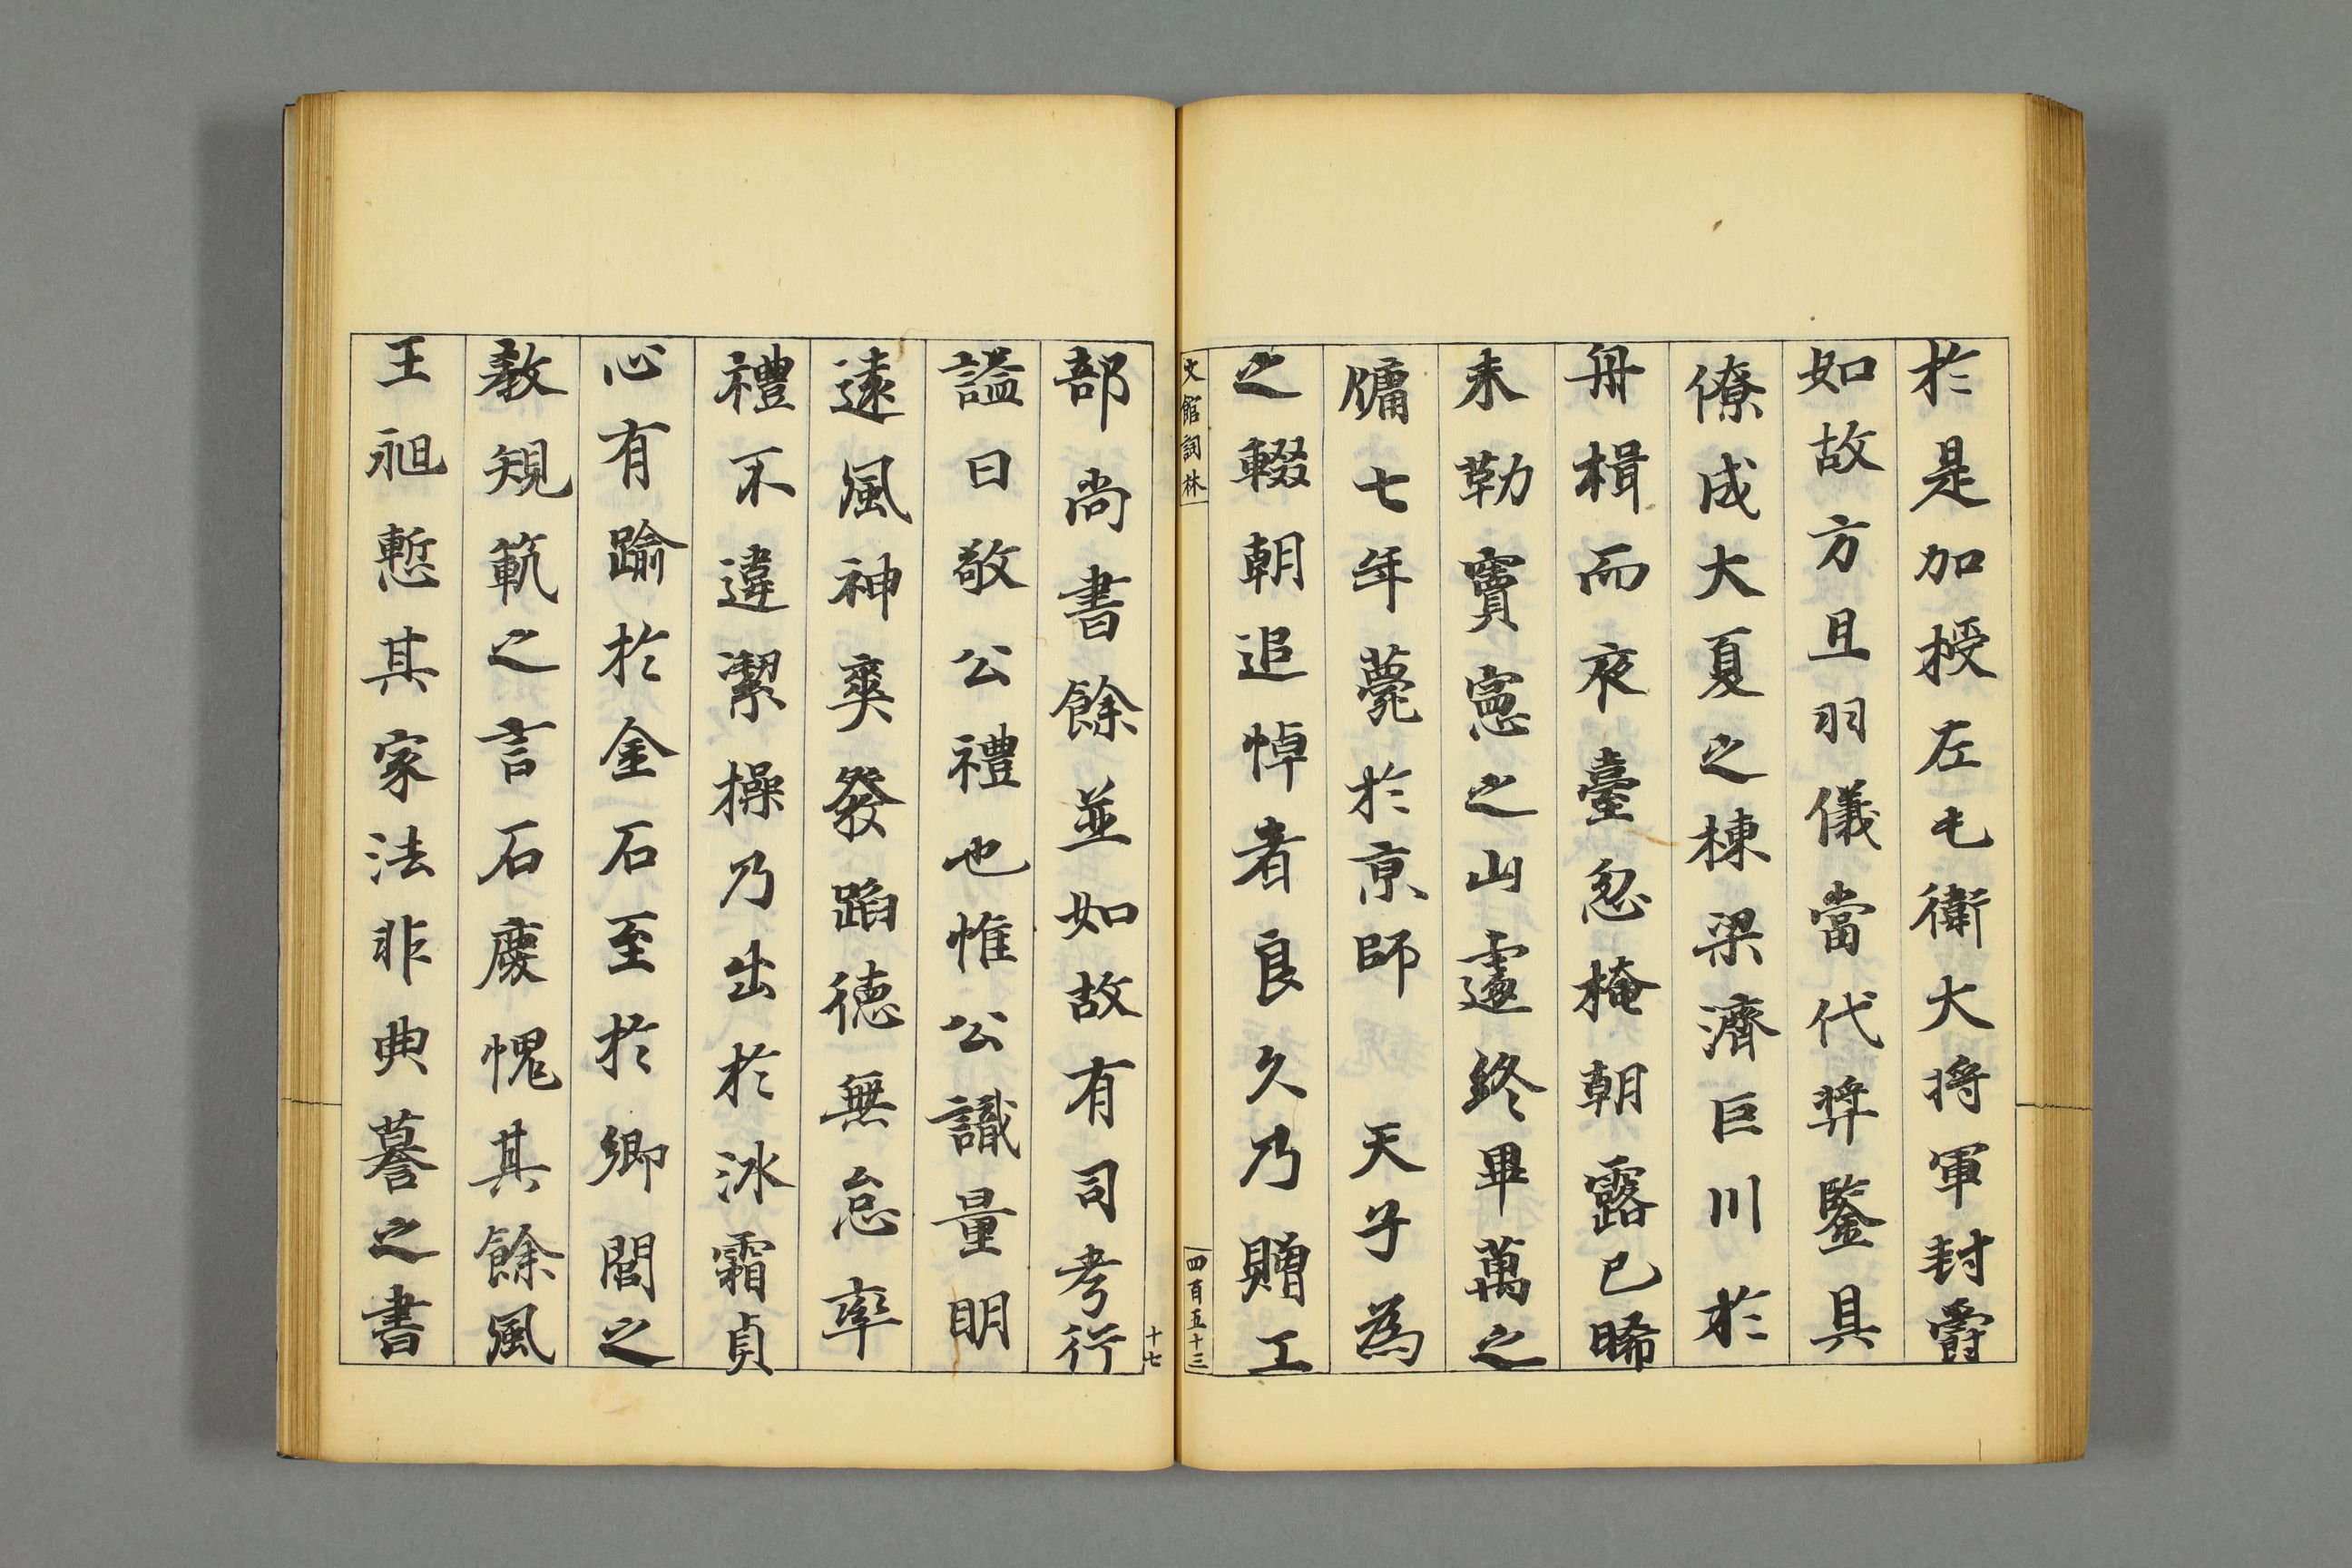 於是加授左屯衛大將軍封爵
如故方且羽儀當代舜鑒具
僚成大夏之棟梁濟巨川於
舟楫而夜臺忽掩朝露已晞
未勒竇憲之山遽終畢萬之
傭七年薨於京師　天子為
之輟朝追悼者良久乃贈工
文館詞林
四百五十三
十七
部尚書餘並如故有司考行
謚曰敬公禮也惟公識量明
遠風神爽發蹈德無怠率
禮不違潔操乃出於冰霜貞
心有踰於金石至於鄉閭之
教規範之言石慶愧其餘風
王昶慙其家法非典謩之書